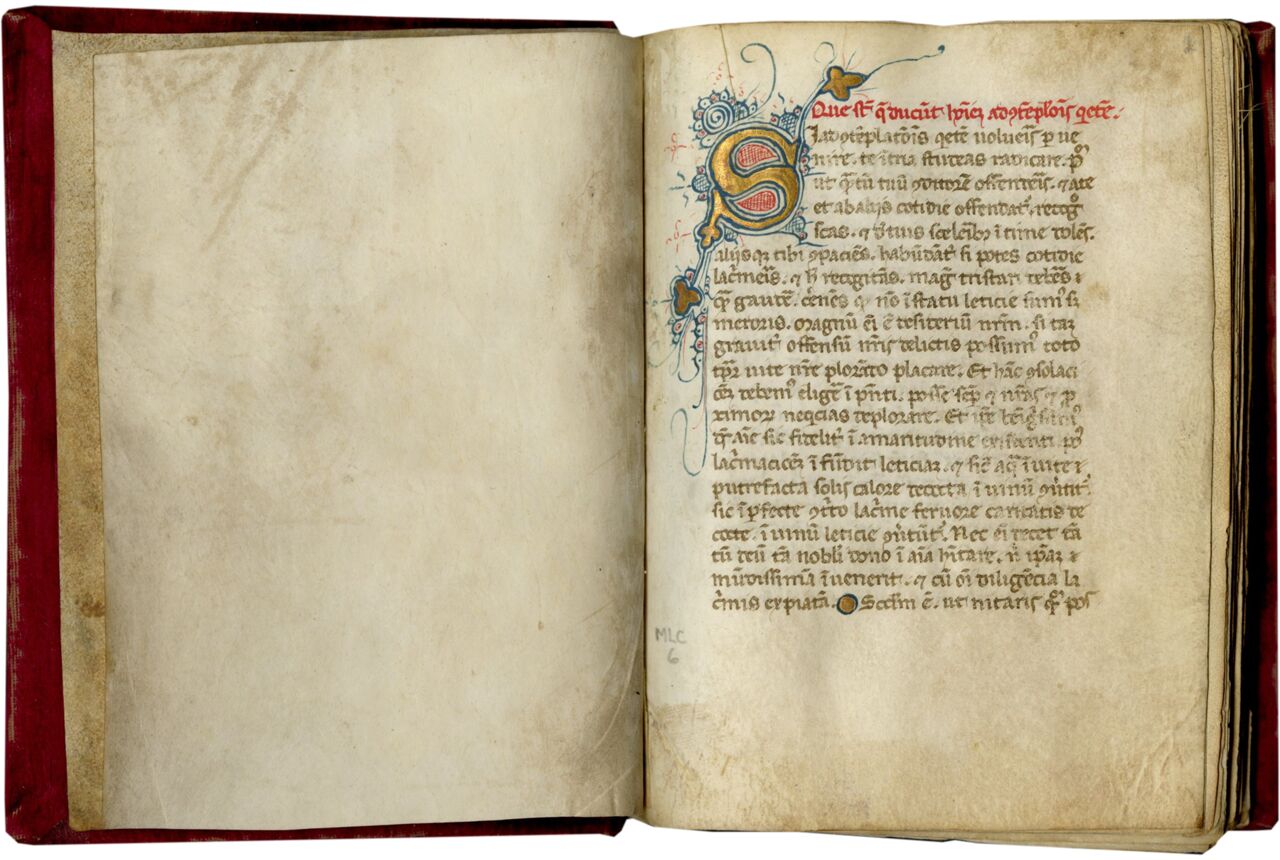 Que st̄ q̄ ducūt hoīez ad ꝯtēplōis q̇etē.
S I ad ꝯtēplatōīs q̇etē uolueīs ꝑ ue
nire. te ītria studeas radicare. p̄º
ut q̄tū tuū ꝯditorē offenderis. ⁊ a te
et ab alijs cotidie offendat᷑. recogº
scas. ⁊ ītime dolēs.
alijsqꝫ tibi ꝯpaciēs. habūdāt᷑ si potes cotidie
lac̓meīs. ⁊ h̄ recogitās. mag̓ tristari debēs
q̄ꝫ gaudē. c̓nēs ꝙ nō ī statu leticie sumꝰ sꝫ
meroris. Magnū ēi ē desideriū nr̄m. si tā
grauit᷑ offensū nr̄is delictis possumꝰ toto
tꝑr uite nr̄e plorādo placare. Et hāc ꝯsolaci
ōeꝫ debemꝰ eligē ī pn̄ti. posse sēꝑ ⁊ nr̄as ⁊ ꝓ
ximorꝫ neq̇cias deplorare. Et
q̄ aīe sic fidelit᷑ ī amaritudine existenti pº
lac̓macōeꝫ īfūdit leticiaꝫ. ⁊ sic̄ aq̄ ī uite
putrefacta solis calore decocta ī uinū ꝯ̓utit᷑.
sic īꝑfecte ꝯ̓to lac̓me feruore caritatis de
cocte. ī uinū leticie ꝯ̓utūt᷑. Nec ēi decet tā
tū deū tā nobli dono ī aīa hītare. nͥ ip̄aꝫ
mūdissimā īuenerit. ⁊ cū oī diligēcia la
c̓mis expiatā. Sc̄dm ē. ut nitaris q̄ꝫ pos
MLC
6